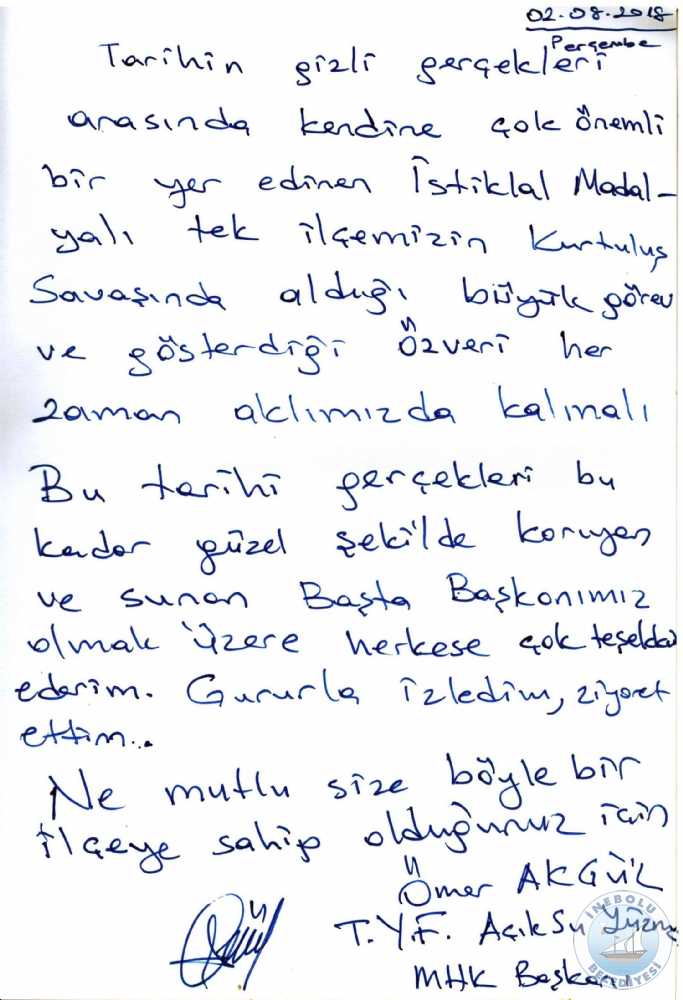 02.08.2018
Perşembe
Tarihin gizli gerçekleri
arasında kendine çok önemli
bir yer edinen İstiklal Madal-
yalı tek ilçemizin Kurtuluş
Savaşında aldığı büyük görev
ve gösterdiği özveri her
zaman aklımızda kalmalı
Bu tarihi gerçekleri bu
kadar güzel şekilde koruyan
ve sunan Başta Başkanımız
olmak üzere herkese çok
ederim. Gururla izledim, ziyaret
ettim..
Ne mutlu size böyle bir
ilçeye sahip olduğunuz için
Ömer AKGÜL
T.Y.F. Açık Su Yüzme
MHK Başkanı
İNEBOLU
BELEDİYESİ